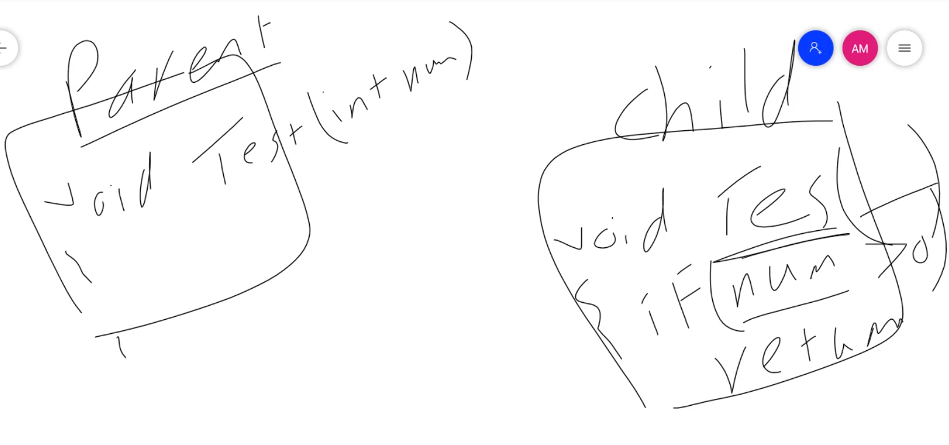 Parent
void Test(int num)
{
Child
void Tes( )
{ if (num > 0)
return
AM